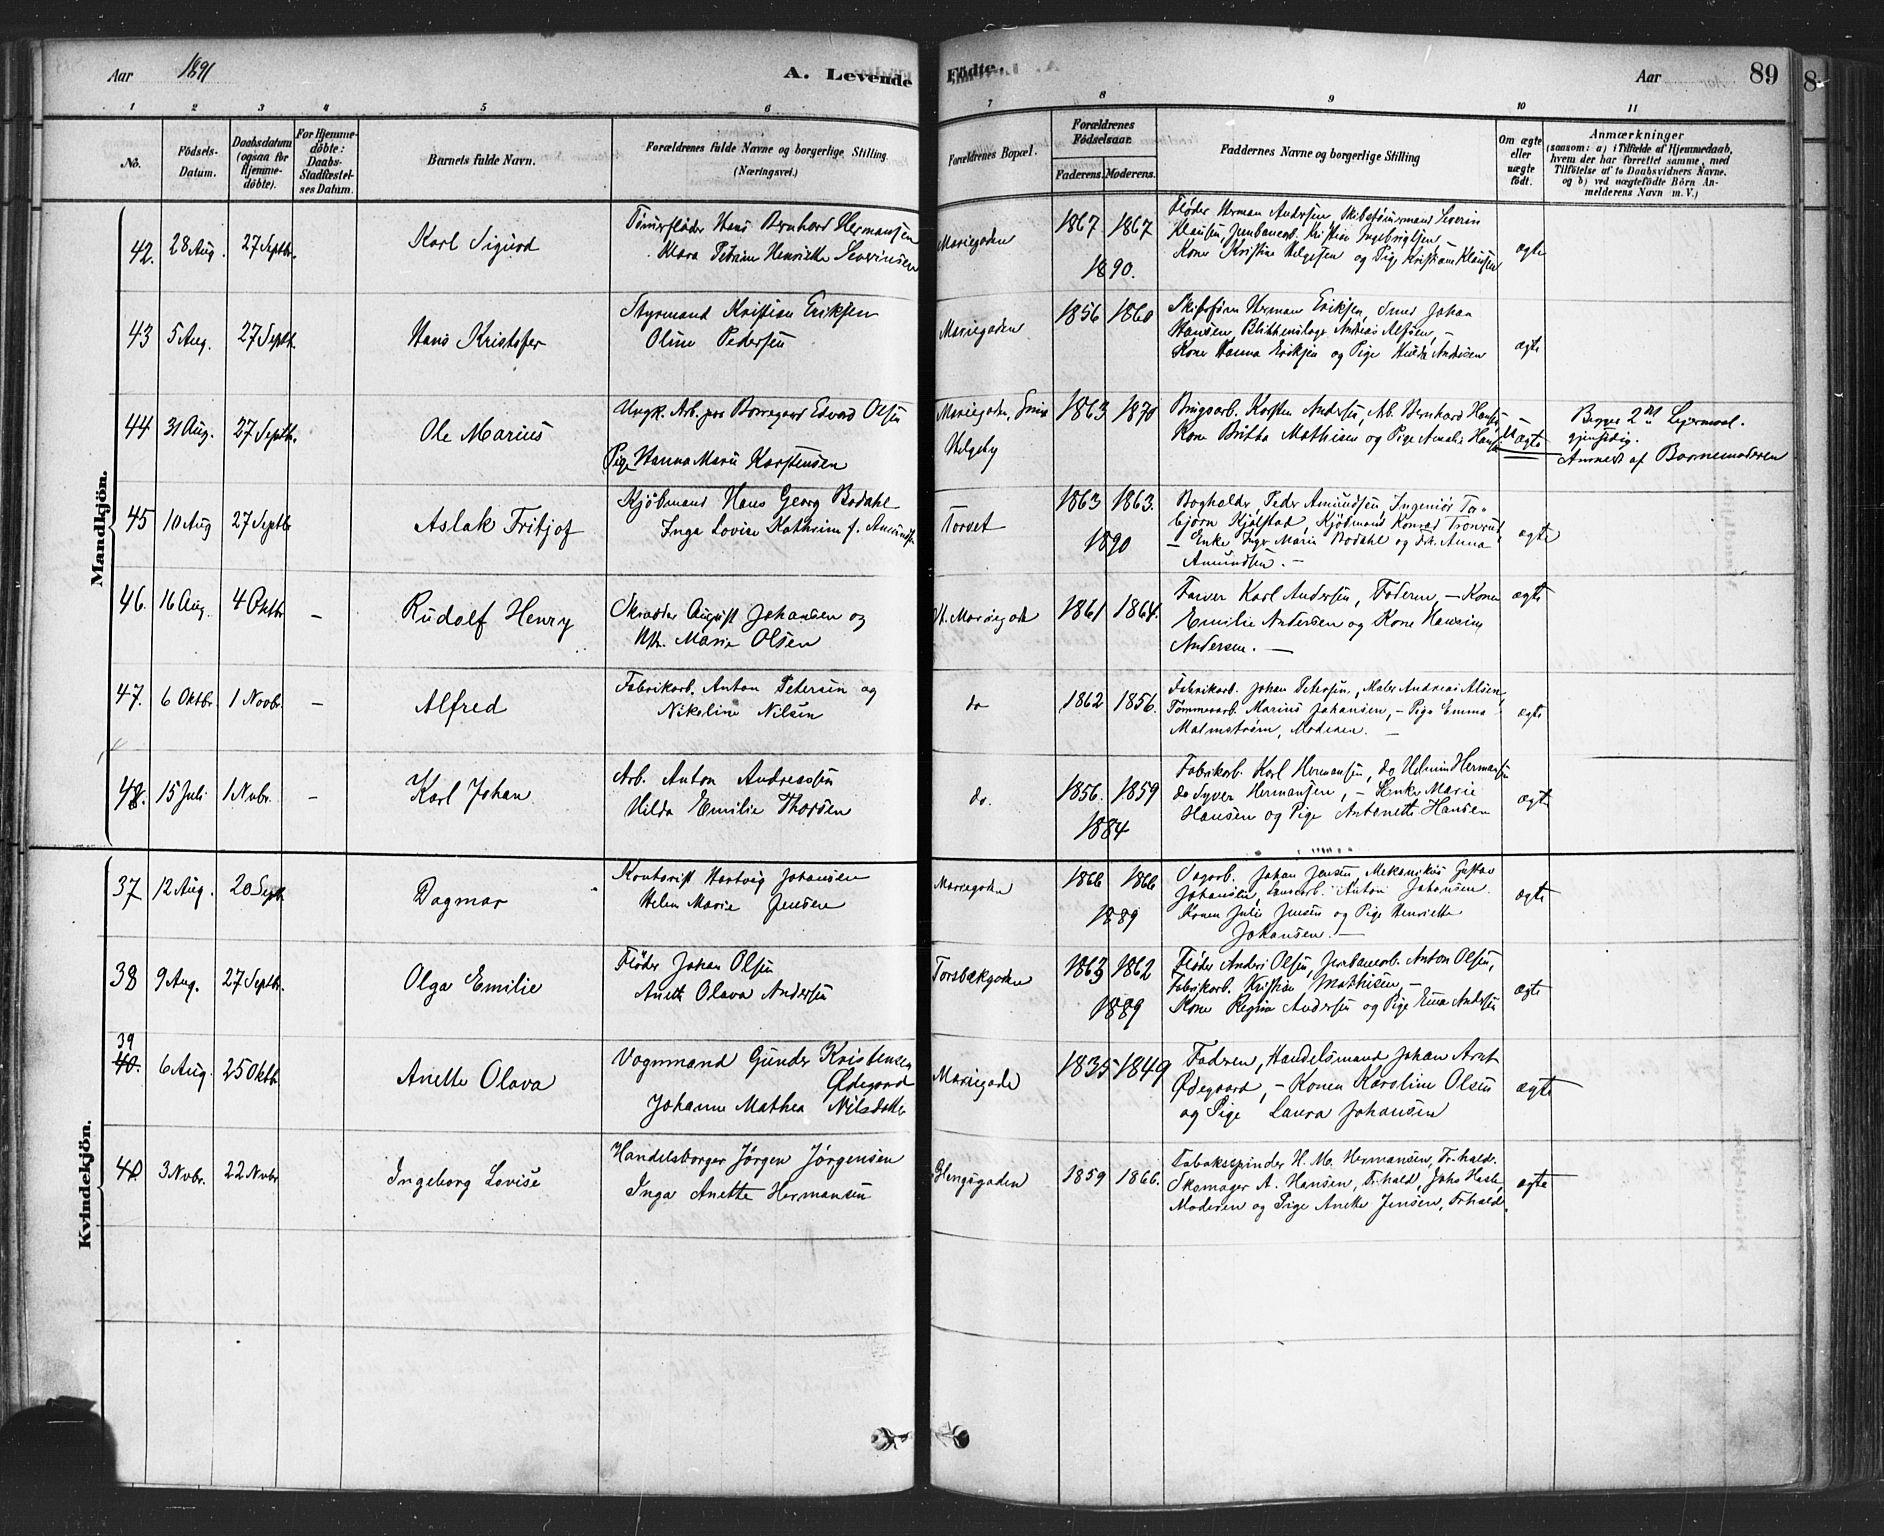 Aar 1891 A. Levende Födte. Aar 89
1 2 3 4 5 6 7 8 9 10 11
No. Födsels-Datum. Daabsdatum (ogsaa for Hjemme-döbte). For Hjemme-döbte: Daabs-Stadfæstel-ses Datum. Barnets fulde Navn. Forældrenes fulde Navne og borgerlige Stilling (Næringsvei.) Forældrenes Bopæl. Forældrenes Födselsaar. Faderens. Moderens. Faddernes Navne og borgerlige Stilling Om ægte eller uægte födt. Anmærkninger (saasom: a) i Tilfælde af Hjemmedaab, hvem der har forrettet samme, med Tilföielse af to Daabsvidners Navne, og b) ved uægtefödte Börn An-melderens Navn (m. V.)
Mandkjön.
42. 28 Aug. 27 Septbr. Karl Sigurd Tömmerfløder Hans Bernhard Hermansen Mariegaden 1867 1867 Fløder Herman Andersen, Skibstömermand Severin
Klara Petrine Henriette Severinsen Klausen, Jernbanearb. Kristian Ingebrigtsen, ægte
1890. Kone Kristine Helgesen og Pige Kristiane Klausen
43 5 Aug. 27 Septb. Hans Kristofer Styrmand Kristian Eriksen Mariegaden 1856 1860 Skibsförer Herman Eriksen, Smed Johan
Oline Pedersen Hansen, Blikkenslager Andreas Alsen, –
Kone Hanna Eriksen og Pige Hulda Andersen ægte
44 31 Aug. 27 Septb. Ole Marius Ungk. Arb. paa Borregaard Edvard Olsen Mariegaden, 1863 1870 Brugsarb. Karsten Andersen, Arb. Bernhard Hansen – Begges 2det Leiermaal.
Pige Hanna Marie Karstensen Helgeby Kone Britha Mathisen og Pige Amalie Hansen Uægte gjensidig.
Anmeldt af Barnemoderen
45 10 Aug 27 Septbr Aslak Fritjof Kjöbmand Hans Georg Bodahl Torvet 1863 1863. Bogholder Peder Amundsen, Ingeniör Tor-
Inga Lovise Kathrine f. Amundsen björn Kjölstad, Kjöbmand Konrad Tronrud,
1890 – Enke Inger Marie Bodahl og Frk. Anna ægte
Amundsen. –
46. 16 Aug. 4 Oktbr – Rudolf Henry Skrædder August Johansen og St. Mariegade 1861 1864. Farver Karl Andersen, Faderen, – Kone ægte
Marie Olsen Emilie Andersen og Kone Hansine
Andersen. –
47. 6 Oktbr. 1 Novbr. – Alfred Fabrikarb. Anton Petersen og do 1862 1856. Fabrikarb. Johan Petersen, Maler Andreas Alsen,
Nikoline Nilsen Tömmerarb. Marius Johansen, – Pige Emma ægte
Malmström, Moderen. –
48. 15 Juli 1 Nvbr. – Karl Johan Arb. Anton Andreassen do. 1856. 1859 Fabrikarb. Karl Hermansen, do Helmin Hermansen
Hilda Emilie Thorsen do Syver Hermansen, – Enke Marie ægte
1884 Hansen og Pige Antonette Hansen
Kvindekjön.
37 12 Aug. 20 Septb. Dagmar Kontorist Hartvig Johansen Mariegaden 1866 1866 Sagarb. Johan Jensen, Mekanikus Gustav
Helen Marie Jensen Johansen, Anton Johansen ægte
1889 Konen Julie Jensen og Pige Henriette
Johansen. –
38 9 Aug. 27 Septbr. Olga Emilie Fløder Johan Olsen Torsbækgaden 1863 1862 Fløder Anders Olsen, Jernbanearb. Anton Olsen,
Anette Olava Andersen Fabrikarb. Kristian Mathisen, – ægte
1889 Kone Regine Andersen og Pige Emma Andersen
39
40. 6 Aug. 25 Oktb. Anette Olava Vognmand Gunder Kristensen Mariegade 1835 1849 Fadren, Handelsmand Johan Arnt
Ødegaard Ødegaard, – Konen Karoline Olsen ægte
Johanne Mathea Nilsdatter og Pige Laura Johansen
40 3 Nvbr. 22 Nvbr Ingeborg Lovise Handelsborger Jörgen Jörgensen Glengsgaden 1859 1866. Tobaksspinder H. M. Hermansen, Fr.hald.
Inga Anette Hermansen Skomager A. Hansen, Fr.hald, Johs Hasle ægte
Moderen og Pige Anette Jensen, Fr.hald.